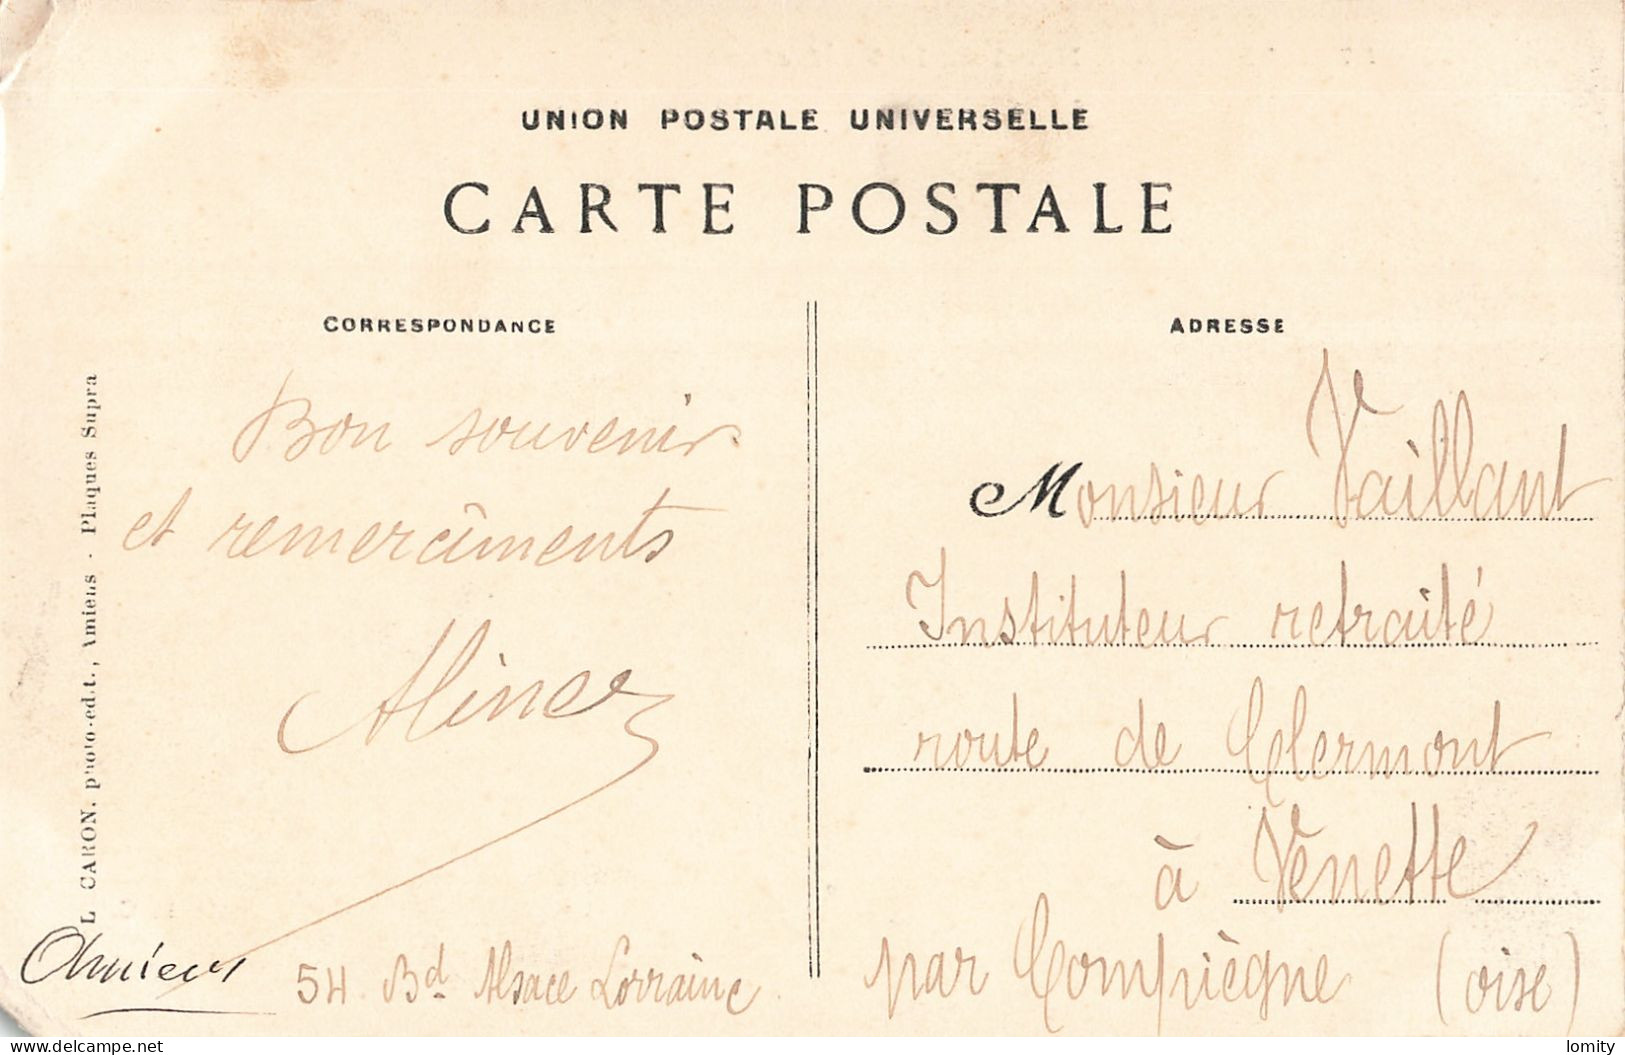 UNION POSTALE UNIVERSELLE
CARTE POSTALE
CORRESPONDANCE
Bon souvenir
et remercîments
Aline
Amiens
54 Bd Alsace Lorraine
L. CARON, photo-edit., Amiens - Plaques Supra
ADRESSE
Monsieur Vaillant
Instituteur retraité
route de Clermont
à Venette
par Compiègne (oise)
delcampe.net
lomity